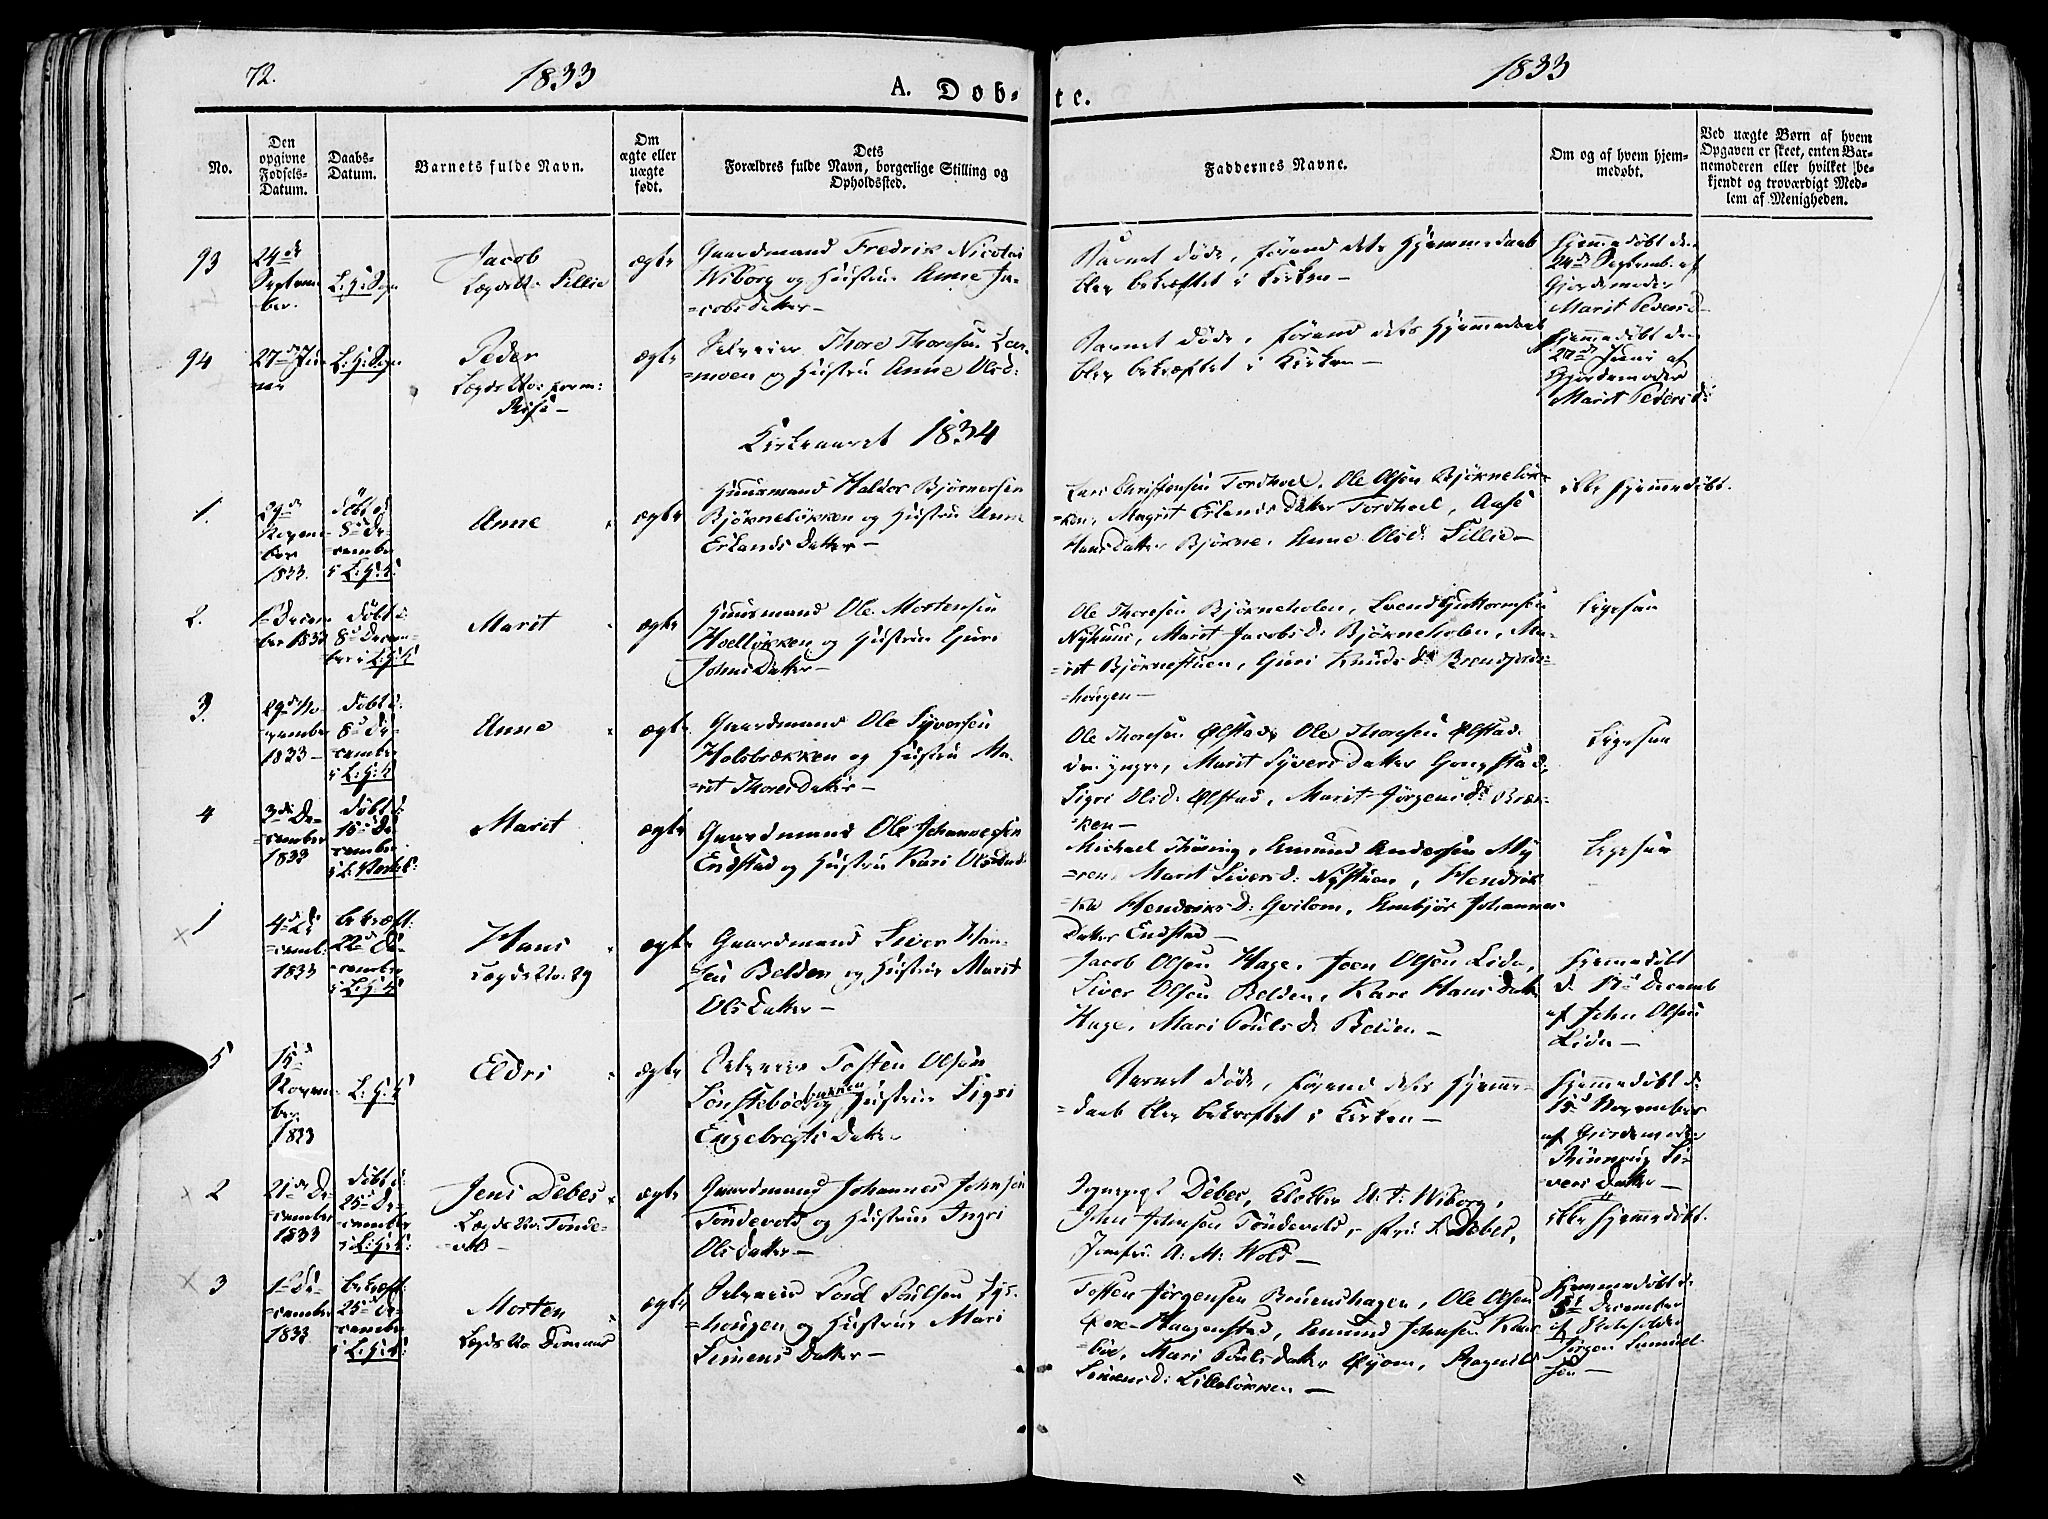 72.
1833
A. Døb-
te.
1833
No.
Den
opgivne
Fødsels-
Datum.
Daabs-
Datum.
Barnets fulde Navn.
Om
ægte eller
uægte
født.
Dets
Forældres fulde Navn, borgerlige Stilling og
Opholdssted.
Faddernes Navne.
Om og af hvem hjem-
medøbt.
Ved uægte Børn af hvem
Opgaven er skeet, enten Bar-
nemoderen eller hvilket be-
kjendt og troværdigt Med-
lem af Menigheden.
93
24de
Septem-
ber.
Jacob
Lægds No: Sillie
ægte
Gaardmand Fredrik Nicolai
Wiborg og Hustrue Anne Ja-
=cobsdatter-
Barnet døde, førend dets Hjemmedaab
blev bekræftet i Kirken-
Hjemmedøbt den
24de Septemb. af
Gjordemoder
Marit Pedersd-
94
Peder
ægte
Selveier Thore Thoresen
=moen og Hustru Anne Olsd:
Barnet døde, førend dets Hjemmedaab
blev bekræftet i Kirken-
Hjemmedøbt den
27de Juni af
Gjordemoder
Marit Pedersd:
Kirkeaaret 1834
1.
29de
Novem-
ber
1833.
døbt d.
8de De-
cember
i L:H:K:
Anne
ægte
Huusmand Haldor Bjørnersen
Bjørneløkken og Hustrue Anne
Erlandsdatter-
Lars Christensen Tordhoel, Ole Olsen Bjørneløk-
=ken, Magrit Erlandsdatter Tordhoel, Aase
Hansdatter Bjørne, Anne Olsd: Sillie-
ikke hjemmedøbt.
2.
1ste Decem-
ber 1833
døbt d:
8de Decem-
ber i L:H:K:
Marit
ægte
Huusmand Ole Mortensen
Hoelløkken og Hustrue Guri
Johnsdatter-
Ole Thoresen Bjørneholen, Svend Guthormsen
Nyhuus, Marit Jacobsd: Bjørneholen, Ma-
=rit Bjørnestuen, Guri Knudsd:
=hougen-
Ligesaa
3.
29de No-
vember
1833-
døbt d:
8de De-
cember
i L:H:K:
Anne
ægte
Gaardmand Ole Syversen
Holsbrækken og Hustru Ma-
=rit Thoresdatter-
Ole Thoresen Ølstad, Ole Thoresen Ølstad
den yngre, Marit Syversdatter Gongstad,
Sigri Olsd: Ølstad, Marit Jørgensd: Bræk-
ken-
Ligesaa
4
3de De-
=cember
1833
døbt d:
15de De
cember
Marit
ægte
Gaardmand Ole Johannessen
Endstad og Hustrue Kari Olsdatter
Michael Thøring, Amund Andersen My
=ren, Marit Siversd: Nystuen, Hendrik
=ka Hendriksd: Qvilom, Embjør Johannes
datter Endstad-
Ligesaa
1
4de De
=cemb:
1833
bekræft:
22de De-
cember
i L:H:K:
Hans
Lægds No: 29
ægte
Gaardmand Siver Han-
sen Belden og Hustrue Marit
Olsdatter-
Jacob Olsen Hage, Joen Olsen Lide,
Siver Olsen Belden, Kare Hansdatter
Hage, Mari Poulsd: Belden-
Hjemmedøbt
d. 15de Decemb
af John Olsen
Lide-
5
15de
Novem-
ber
1833
L:H:K:
Eldri
ægte
Selveier Tosten Olsen
Sønstebødbakken og Hustrue Sigri
Engebregtsdatter
Barnet døde, førend dets Hjemme-
=daab blev bekræftet i Kirken-
Hjemmedøbt d:
15de November
af Gjordemoder
Rønnaug Si-
versdatter-
2
21de De-
cember
1833
døbt d:
25de De-
cember
i L:H:K:
Jens Debes
Lægds No: Tønde-
=vold-
ægte
Gaardmand Johannes Johnsen
Tøndevold og Hustrue Ingri
Olsdatter-
Sognepræst Debes, Klokker A:F: Wiborg,
John Johnsen Tøndevold, Fru S. Debes,
Jomfru A: M: Wold-
ikke hjemmedøbt.
3
1ste De-
cember
1833
bekræft:
25de De-
cember
i L:H:K:
Morten
ægte
Selveier Poul Poulsen
=hougen og Hustrue Mari
Simensdatter-
Tosten Jørgensen Bruenshagen, Ole Olsen
Haagenstad, Amund Johnsen
Mari Poulsdatter Øyom, Ragnild
Simensd: Lilleløkken-
Hjemmedøbt d:
December
af Skoleholder
Jørgen Samuel-
sen-